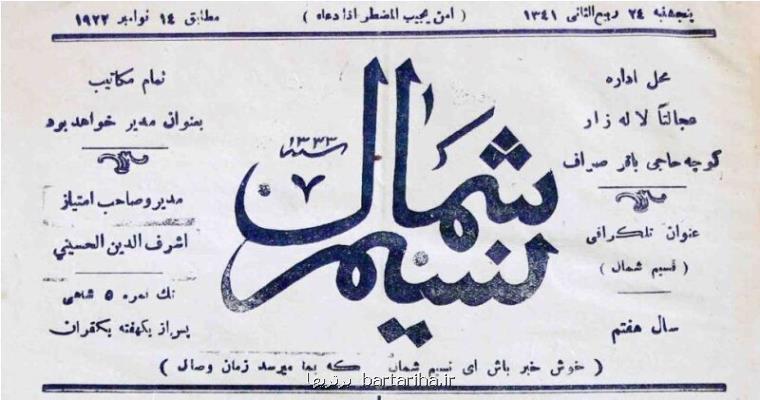 پنجشنبه ۲۴ ربیع الثانی ۱۳۴۱
( امن یجیب المضطر اذا دعاه )
مطابق ۱۴ نوامبر ۱۹۲۲
محل اداره
عجالتاً لاله زار
کوچه حاجی باقر صراف
عنوان تلگرافی
( نسیم شمال )
سال هفتم
سنه ۱۳۳۳
۷
نسیم شمال
تمام مکاتیب
بعنوان مدیر خواهد بود
مدیر و صاحب امتیاز
اشرف الدین الحسینی
تك نمره ۵ شاهی
پس از یکهفته یکقران
( خوش خبر باش ای نسیم شمال که بما میرسد زمان وصال )
برترینها bartariha.ir